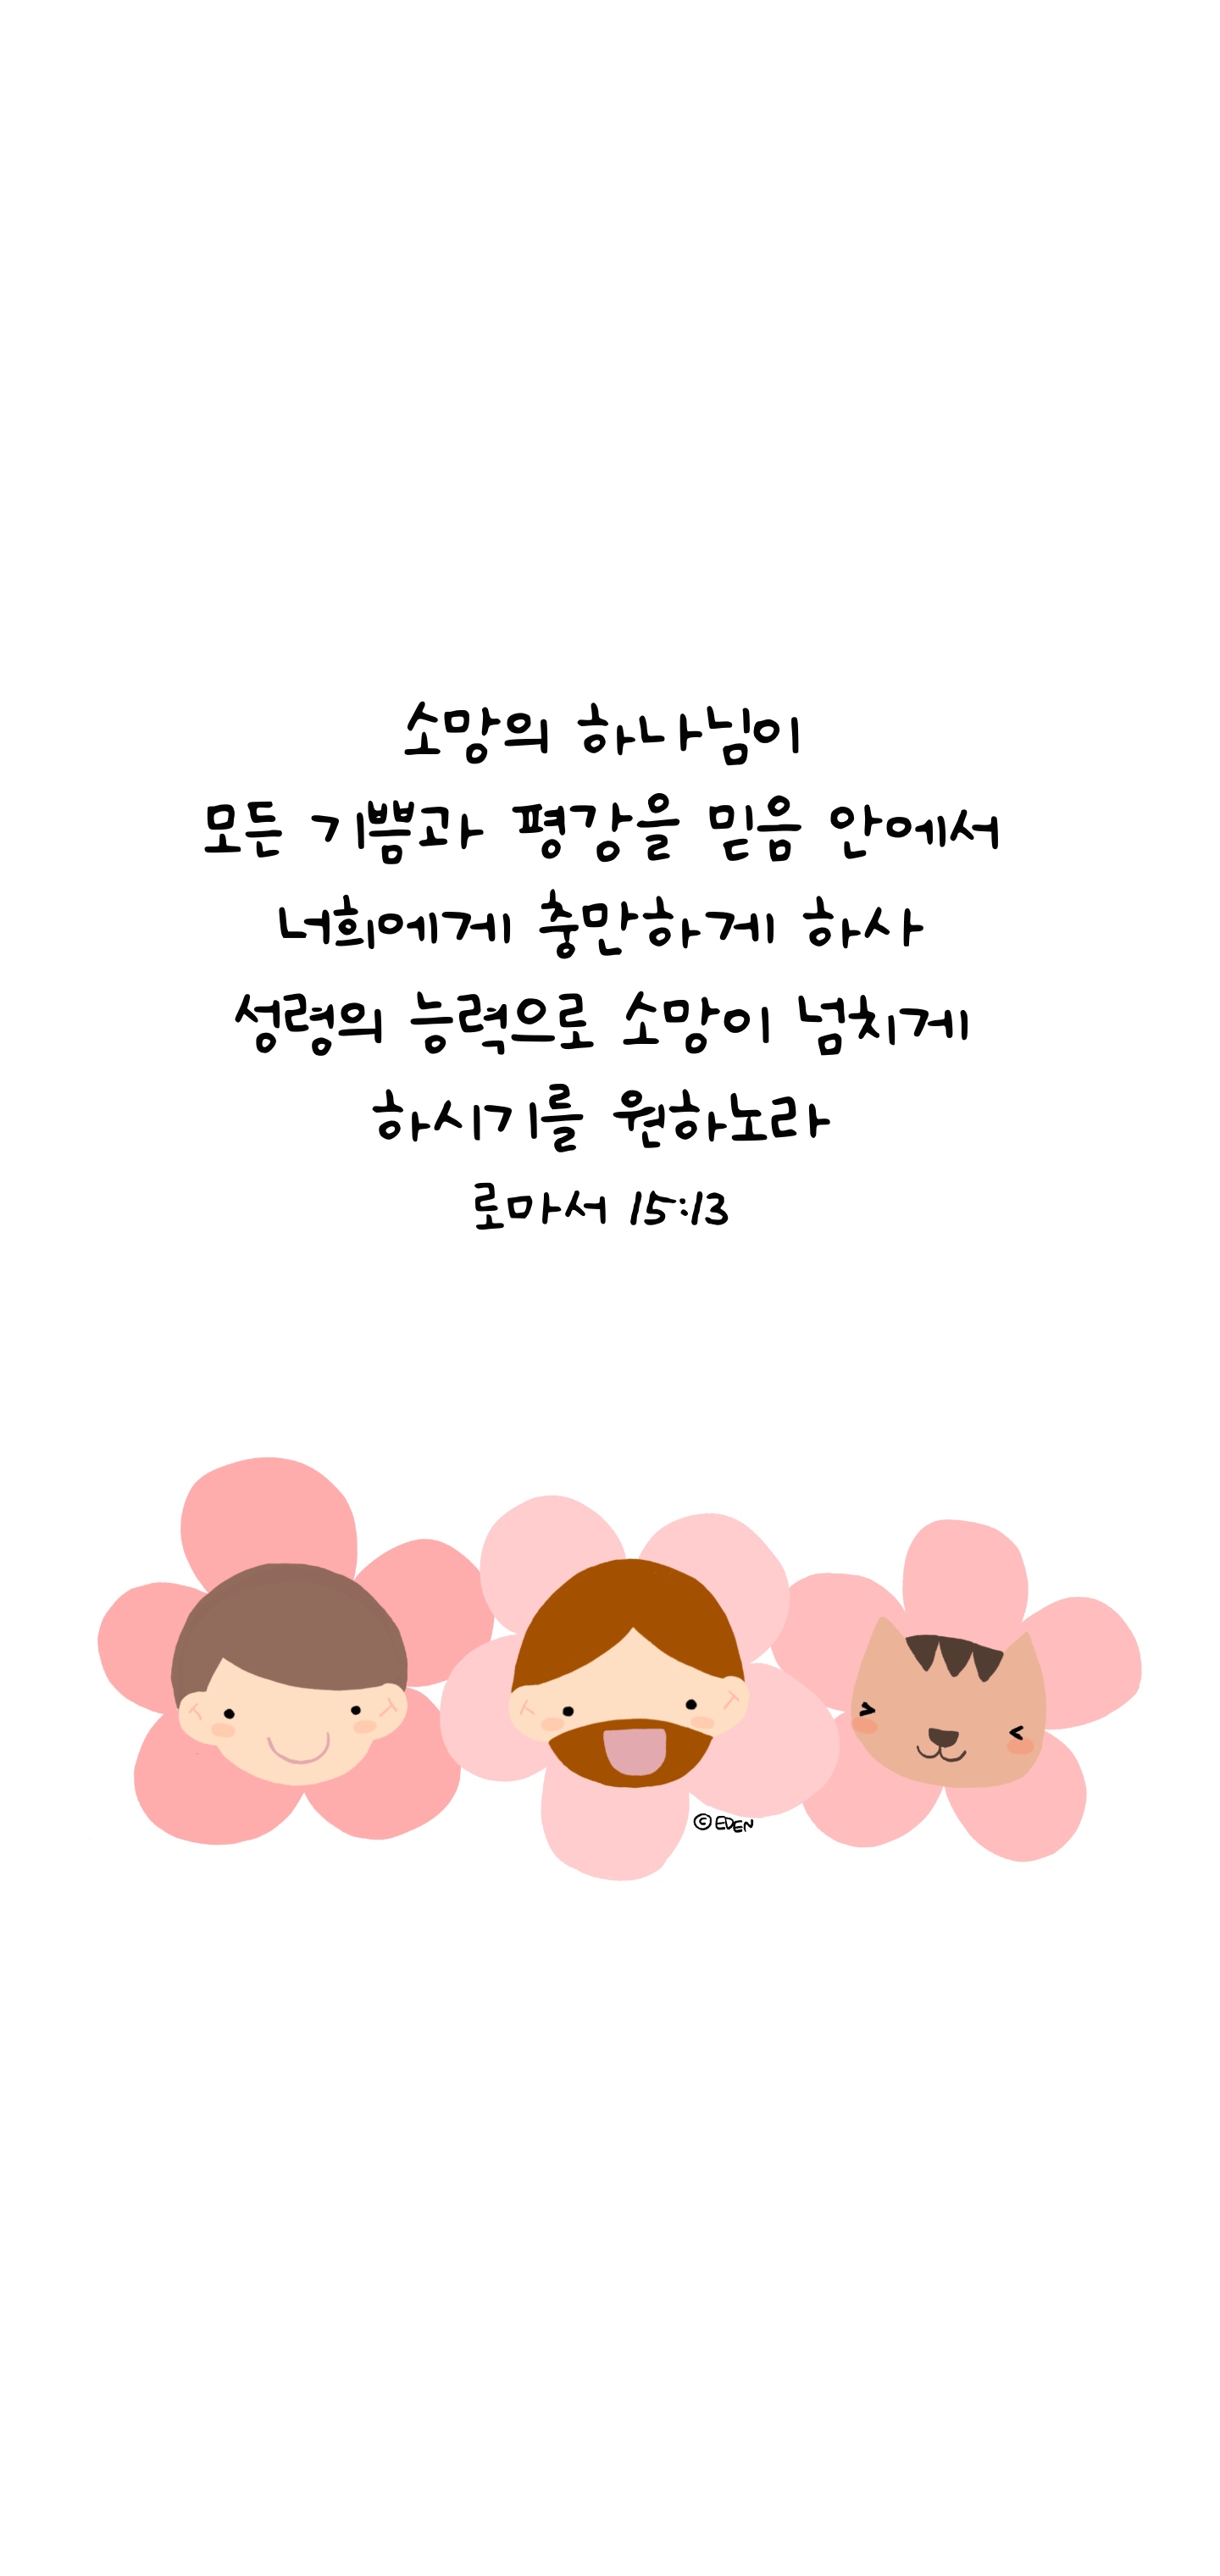 소망의 하나님이
모든 기쁨과 평강을 믿음 안에서
너희에게 충만하게 하사
성령의 능력으로 소망이 넘치게
하시기를 원하노라
로마서 15:13
© EDEN